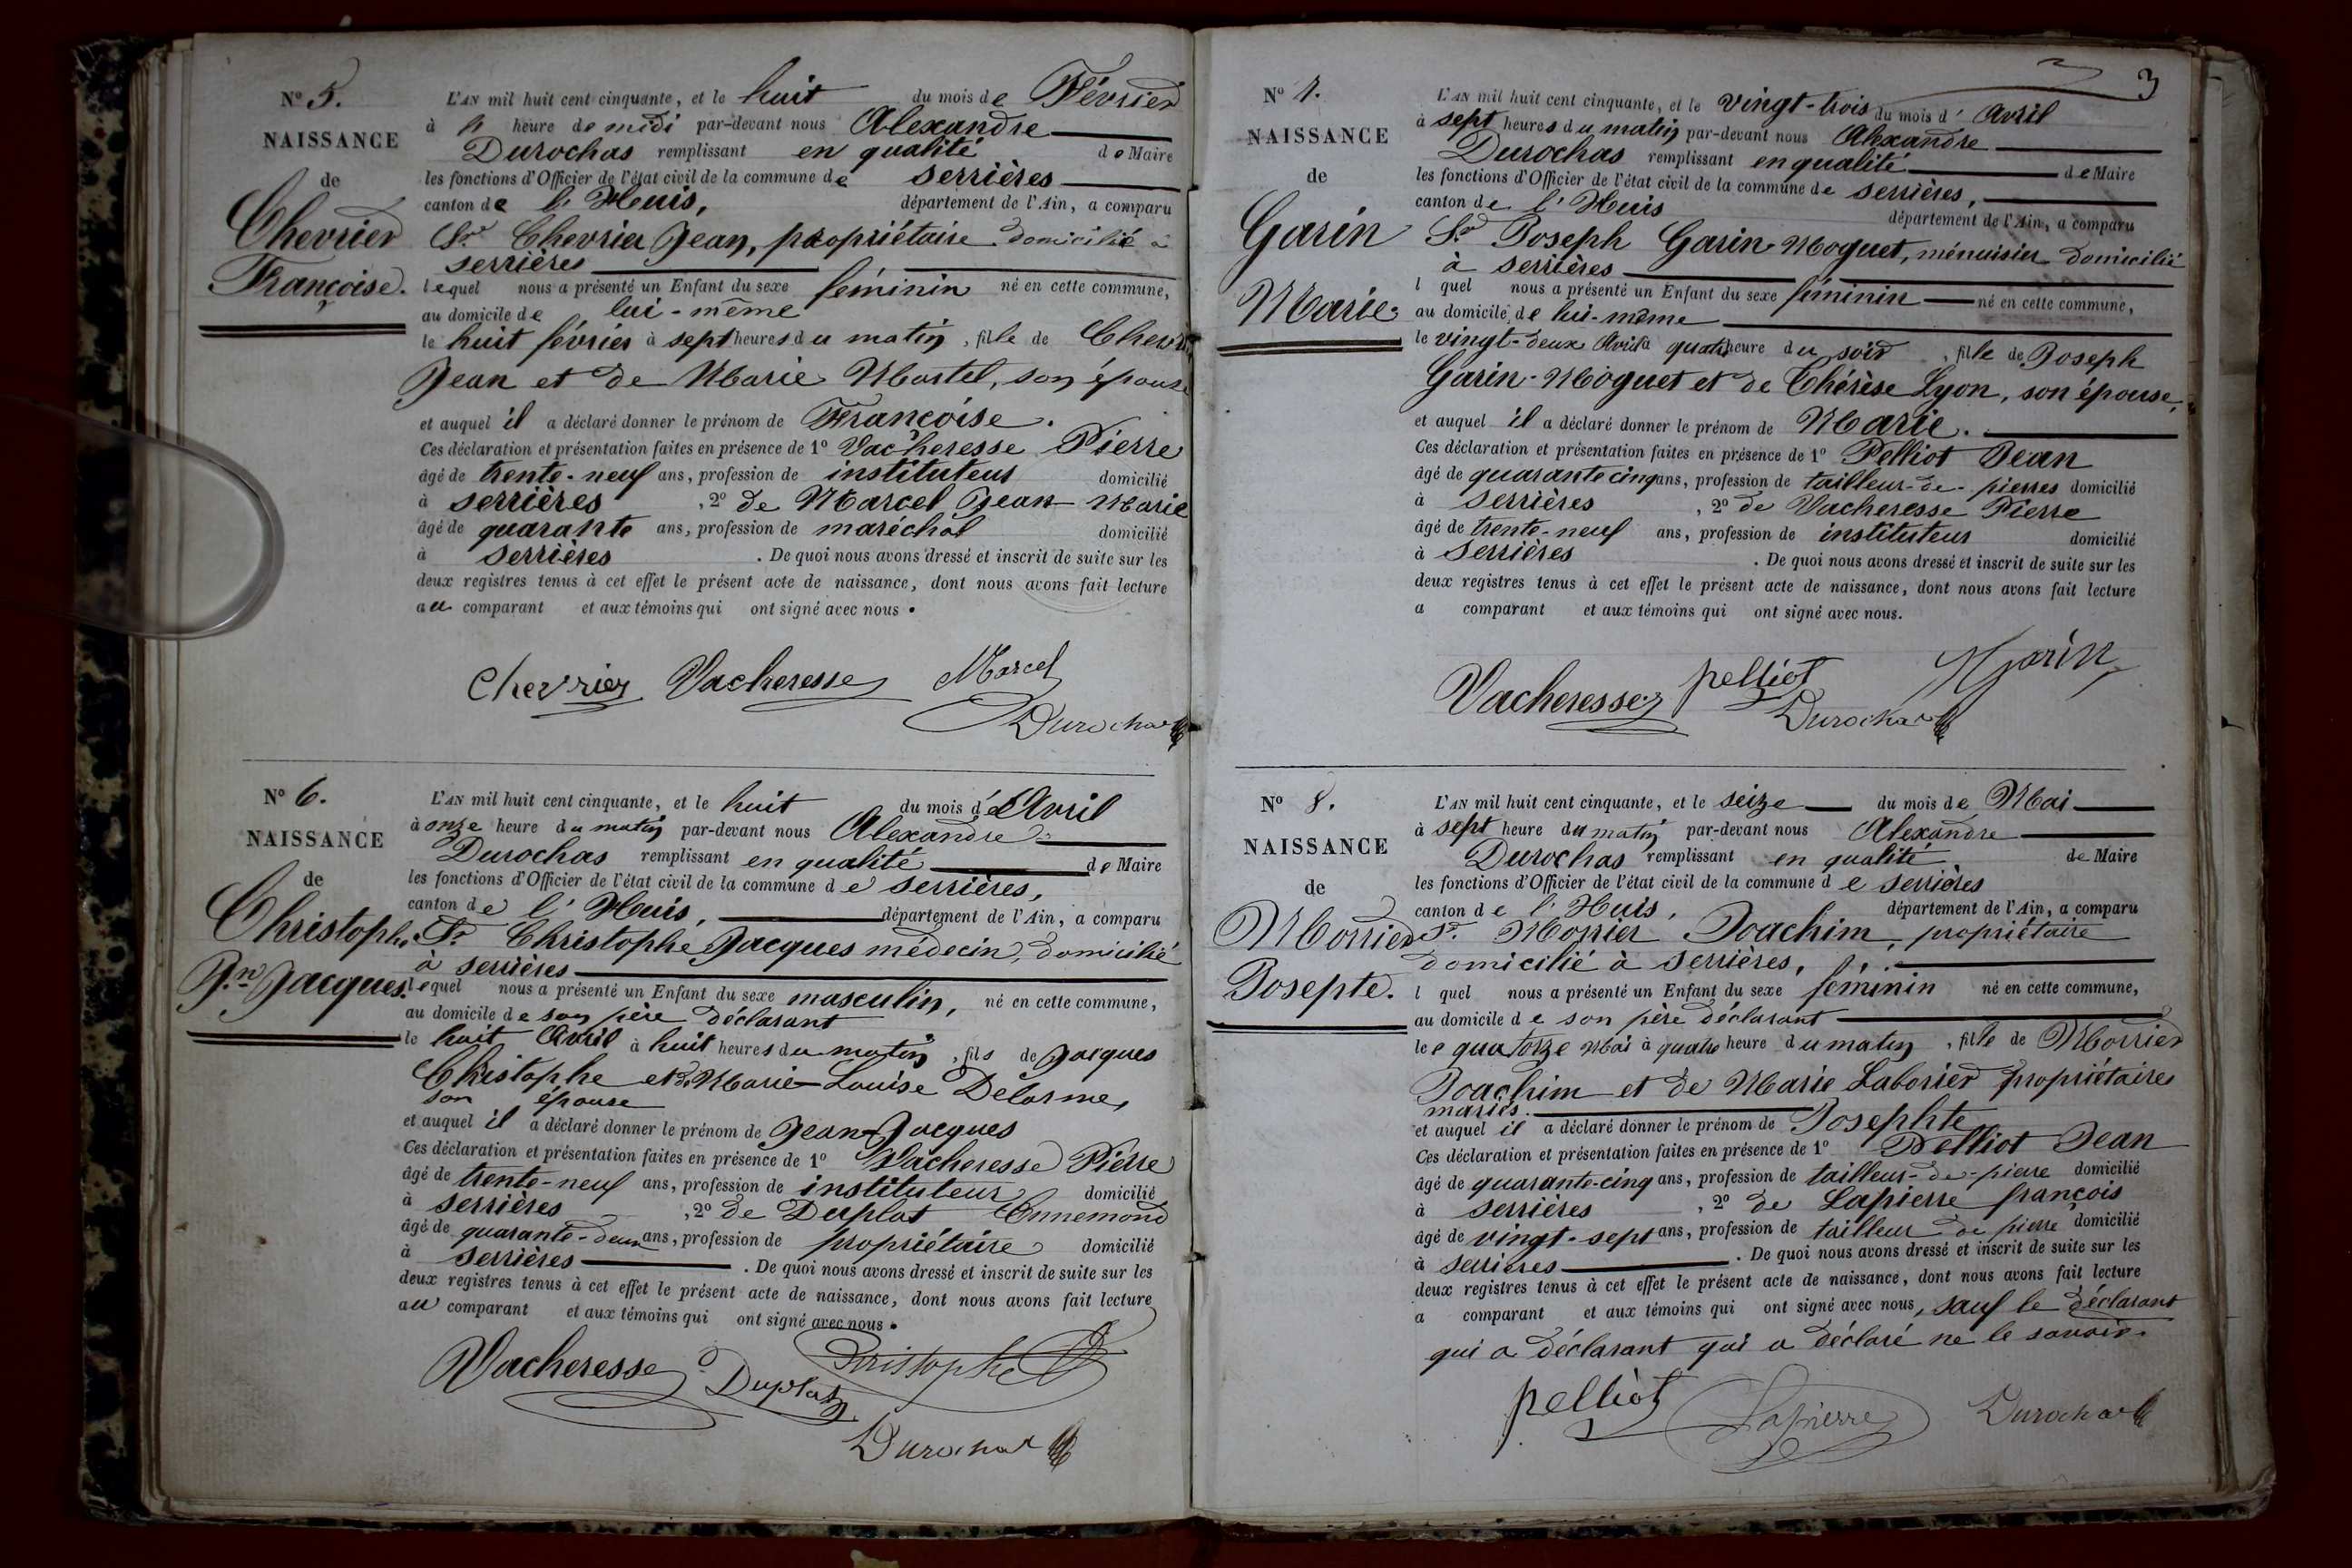 N° 5.
NAISSANCE
de
Chevrier
Françoise.
L'AN mil huit cent cinquante, et le huit du mois de Février
à heure de midi par-devant nous Alexandre
Durochas remplissant en qualité de Maire
les fonctions d'Officier de l'état civil de la commune de serrières
canton de l'Huis, département de l'Ain, a comparu
Sr Chevrier Jean, propriétaire domicilié à
serrières
lequel nous a présenté un Enfant du sexe féminin né en cette commune,
au domicile de lui-même
le huit février à sept heures du matin, fille de
Jean et de Marie Martel, son épouse
et auquel il a déclaré donner le prénom de Françoise.
Ces déclaration et présentation faites en présence de 1° Vacheresse Pierre
âgé de trente-neuf ans, profession de instituteur domicilié
à serrières, 2° de Marcel Jean-Marie
âgé de quarante ans, profession de maréchal domicilié
à serrières. De quoi nous avons dressé et inscrit de suite sur les
deux registres tenus à cet effet le présent acte de naissance, dont nous avons fait lecture
au comparant et aux témoins qui ont signé avec nous.
Chevrier Vacheresse Marcel
Durochas
N° 6.
NAISSANCE
de
Christophe
Jn Jacques.
L'AN mil huit cent cinquante, et le huit du mois d'Avril
à onze heure du matin par-devant nous Alexandre
Durochas remplissant en qualité de Maire
les fonctions d'Officier de l'état civil de la commune de serrières,
canton de l'Huis, département de l'Ain, a comparu
Sr Christophe Jacques médecin, domicilié
à serrières
lequel nous a présenté un Enfant du sexe masculin, né en cette commune,
au domicile de son père déclarant
le huit Avril à huit heures du matin, fils de Jacques
Christophe et de Marie-Louise Delorme,
son épouse
et auquel il a déclaré donner le prénom de Jean-Jacques
Ces déclaration et présentation faites en présence de 1° Vacheresse Pierre
âgé de trente-neuf ans, profession de instituteur domicilié
à serrières, 2° de Duplat Ennemond
âgé de quarante-deux ans, profession de propriétaire domicilié
à serrières. De quoi nous avons dressé et inscrit de suite sur les
deux registres tenus à cet effet le présent acte de naissance, dont nous avons fait lecture
au comparant et aux témoins qui ont signé avec nous.
Vacheresse Duplat Christophe
Durochas
3
N° 7.
NAISSANCE
de
Garin
Marie
L'AN mil huit cent cinquante, et le vingt-trois du mois d'Avril
à sept heures du matin par-devant nous Alexandre
Durochas remplissant en qualité de Maire
les fonctions d'Officier de l'état civil de la commune de serrières,
canton de l'Huis département de l'Ain, a comparu
Sr Joseph Garin-Moquet, ménuisier domicilié
à serrières
l quel nous a présenté un Enfant du sexe féminin né en cette commune,
au domicile de lui-même
le vingt-deux Avril à quatre heure du soir, fille de Joseph
Garin-Moquet et de Thérèse Lyon, son épouse,
et auquel il a déclaré donner le prénom de Marie.
Ces déclaration et présentation faites en présence de 1° Pelliot Jean
âgé de quarante cinq ans, profession de tailleur-de-pierres domicilié
à serrières, 2° de Vacheresse Pierre
âgé de trente-neuf ans, profession de instituteur domicilié
à serrières. De quoi nous avons dressé et inscrit de suite sur les
deux registres tenus à cet effet le présent acte de naissance, dont nous avons fait lecture
a comparant et aux témoins qui ont signé avec nous.
Vacheresse pelliot Garin
Durochas
N° 8.
NAISSANCE
de
Morrier
Josepte.
L'AN mil huit cent cinquante, et le seize du mois de Mai
à sept heure du matin par-devant nous Alexandre
Durochas remplissant en qualité de Maire
les fonctions d'Officier de l'état civil de la commune de serrières
canton de l'Huis, département de l'Ain, a comparu
Sr Morrier Joachim, propriétaire
domicilié à serrières,
l quel nous a présenté un Enfant du sexe féminin né en cette commune,
au domicile de son père déclarant
le quatorze Mai à quatre heure du matin, fille de Morrier
Joachim et de Marie Laborier propriétaires
mariés.
et auquel il a déclaré donner le prénom de Josephte
Ces déclaration et présentation faites en présence de 1° Pelliot Jean
âgé de quarante-cinq ans, profession de tailleur-de-pierre domicilié
à serrières, 2° de Lapierre françois
âgé de vingt-sept ans, profession de tailleur de pierre domicilié
à serrières. De quoi nous avons dressé et inscrit de suite sur les
deux registres tenus à cet effet le présent acte de naissance, dont nous avons fait lecture
a comparant et aux témoins qui ont signé avec nous, sauf le déclarant
qui a déclarant qui a déclaré ne le savoir.
pelliot Lapierre Durochas